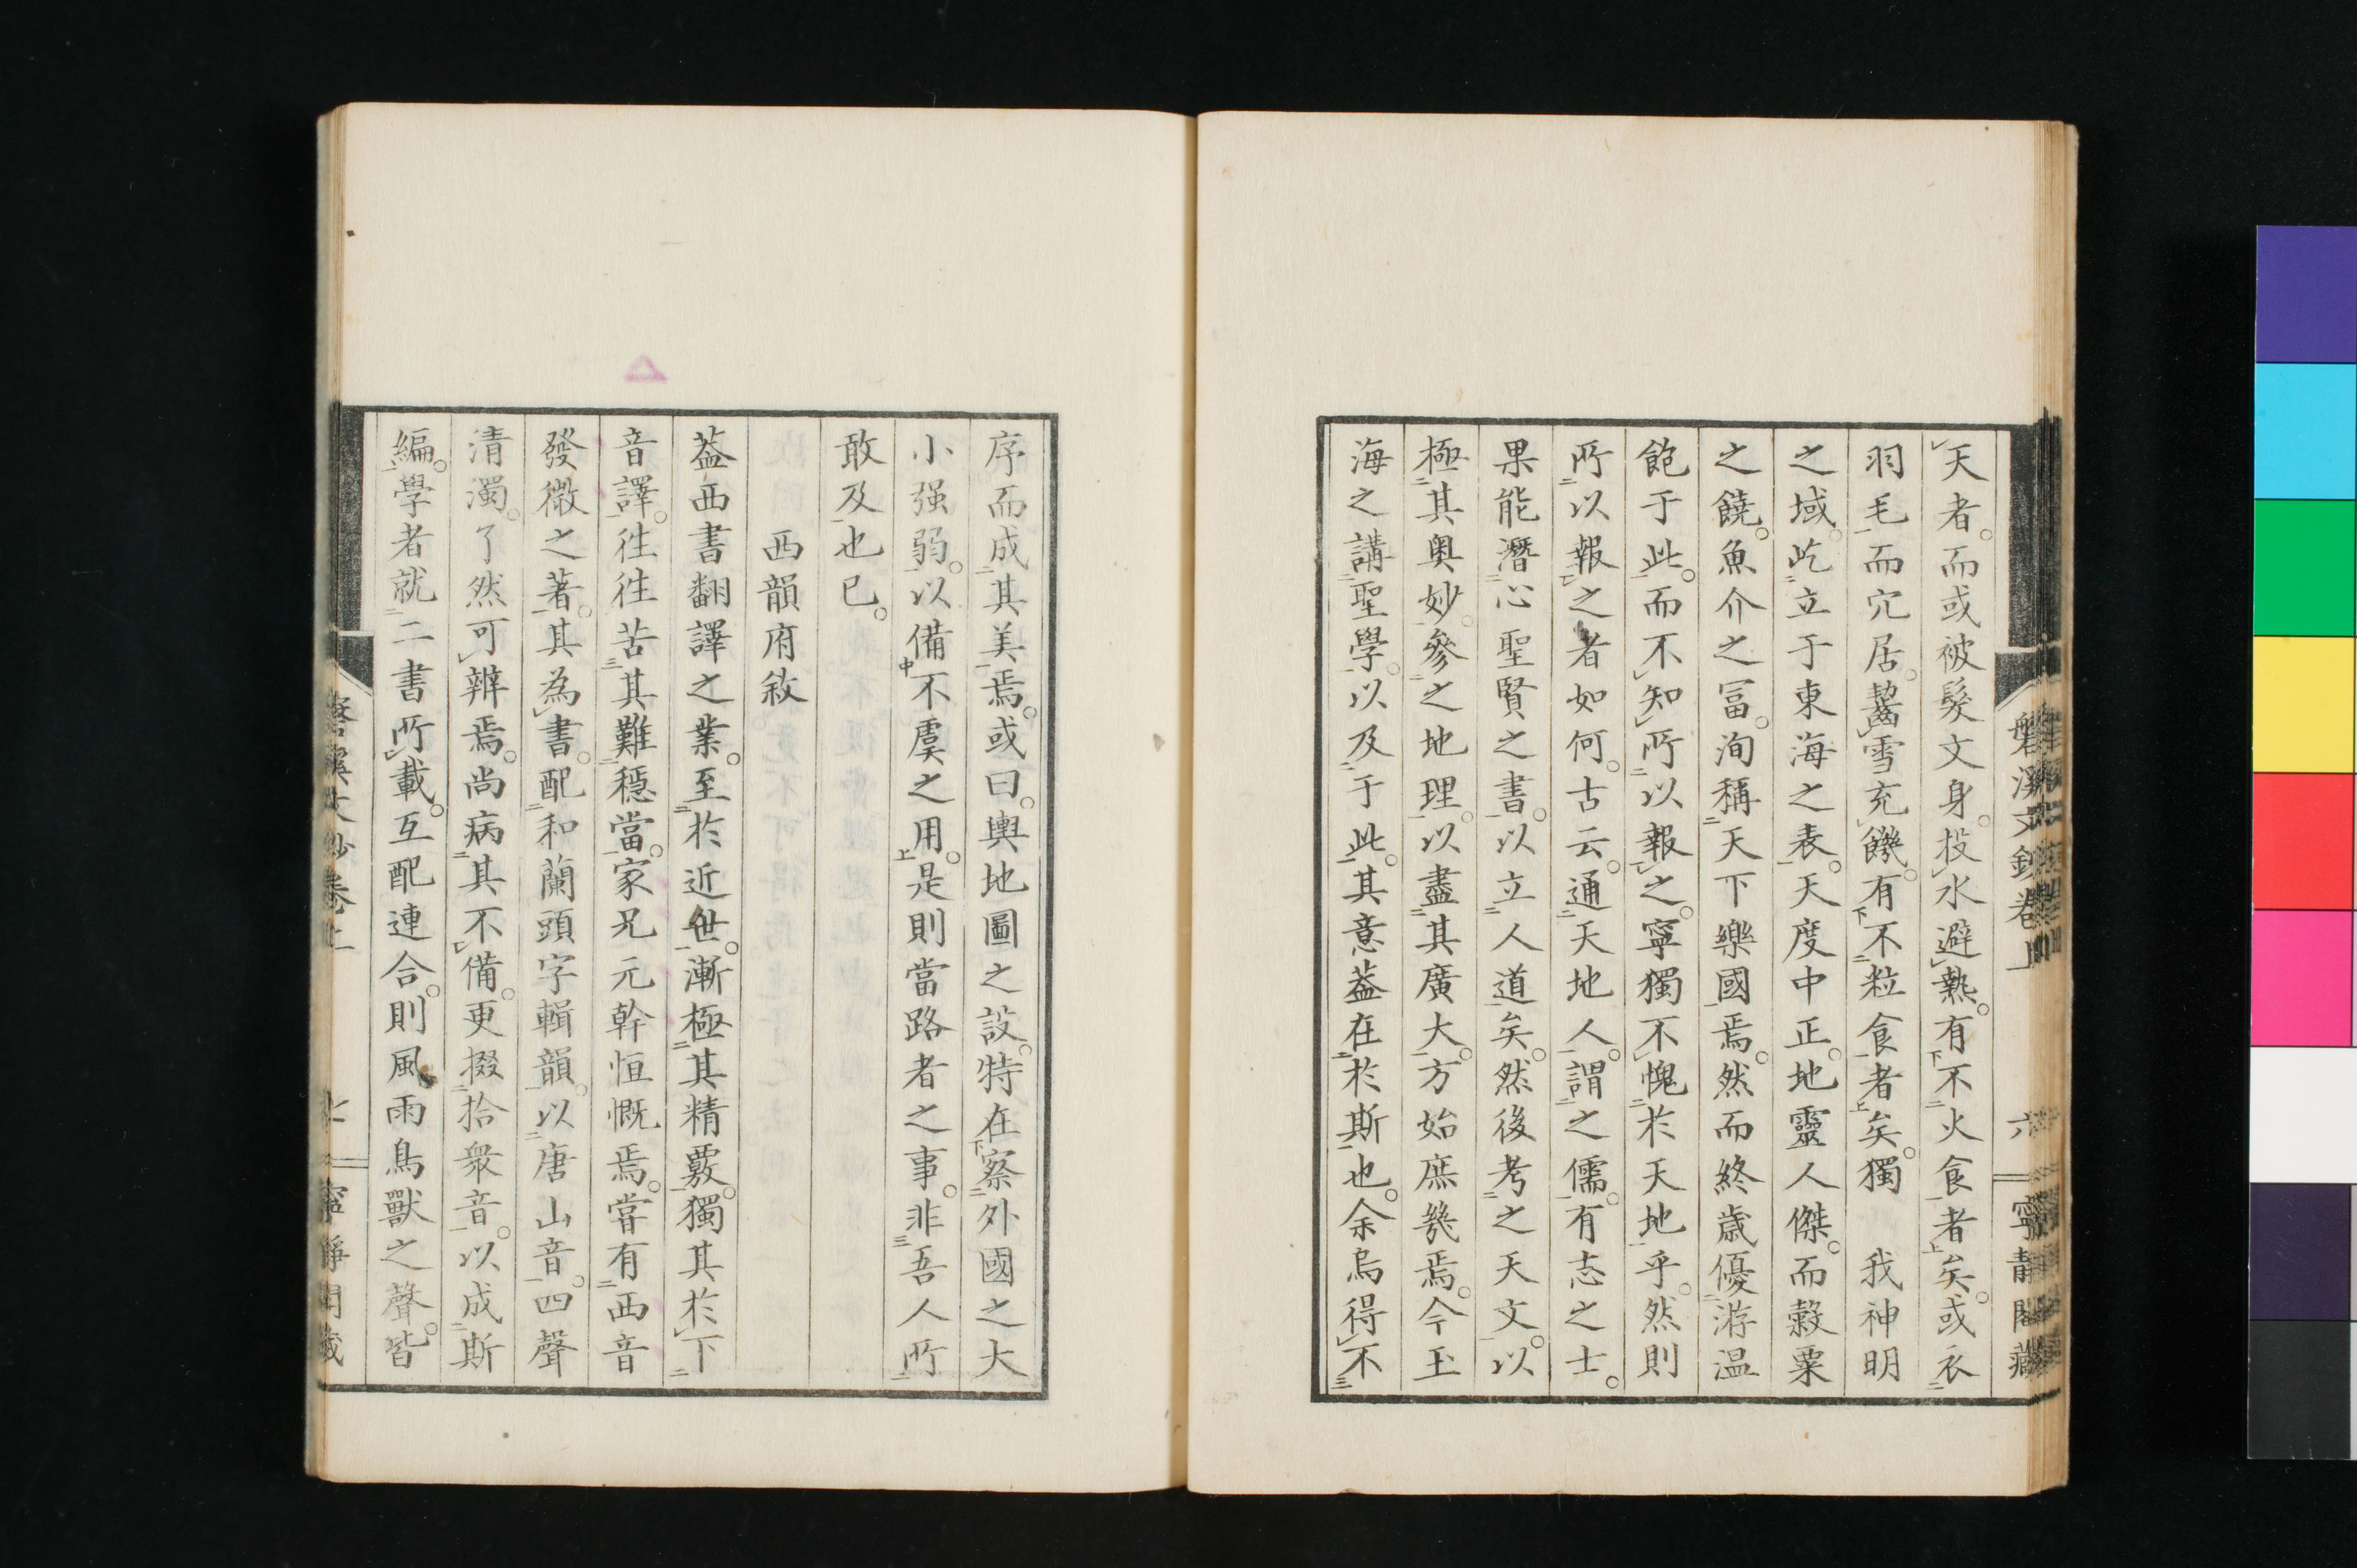 天者。而或被髮文身。投水避熱。有不火食者矣。或衣
羽毛而穴居。齧雪充饑。有不粒食者矣。獨　我神明
之域。屹立于東海之表。天度中正。地靈人傑。而穀粟
之饒。魚介之冨。洵稱天下樂國焉。然而終歳優游温
飽于此。而不知所以報之。寧獨不愧於天地乎。然則
所以報之者如何。古云。通天地人。謂之儒。有志之士。
果能潛心聖賢之書。以立人道矣。然後考之天文。以
極其奥妙。參之地理。以盡其廣大。方始庶幾焉。今玉
海之講聖學。以及于此。其意葢在於斯也。余烏得不
磐溪文鈔卷上
六
寧靜閣藏
序而成其美焉。或曰。輿地圖之設。特在察外國之大
小强弱。以備不虞之用。是則當路者之事。非吾人所
敢及也已。
西韻府敘
葢西書翻譯之業。至於近世。漸極其精覈。獨其於下
音譯。徃徃苦其難穩當。家兄元幹恒慨焉。嘗有西音
發微之著。其為書。配和蘭頭字輯韻。以唐山音。四聲
清濁。了然可辨焉。尚病其不備。更掇拾衆音。以成斯
編。學者就二書所載。互配連合。則風雨鳥獸之聲。皆
磐溪文鈔卷上
七
寧靜閣藏